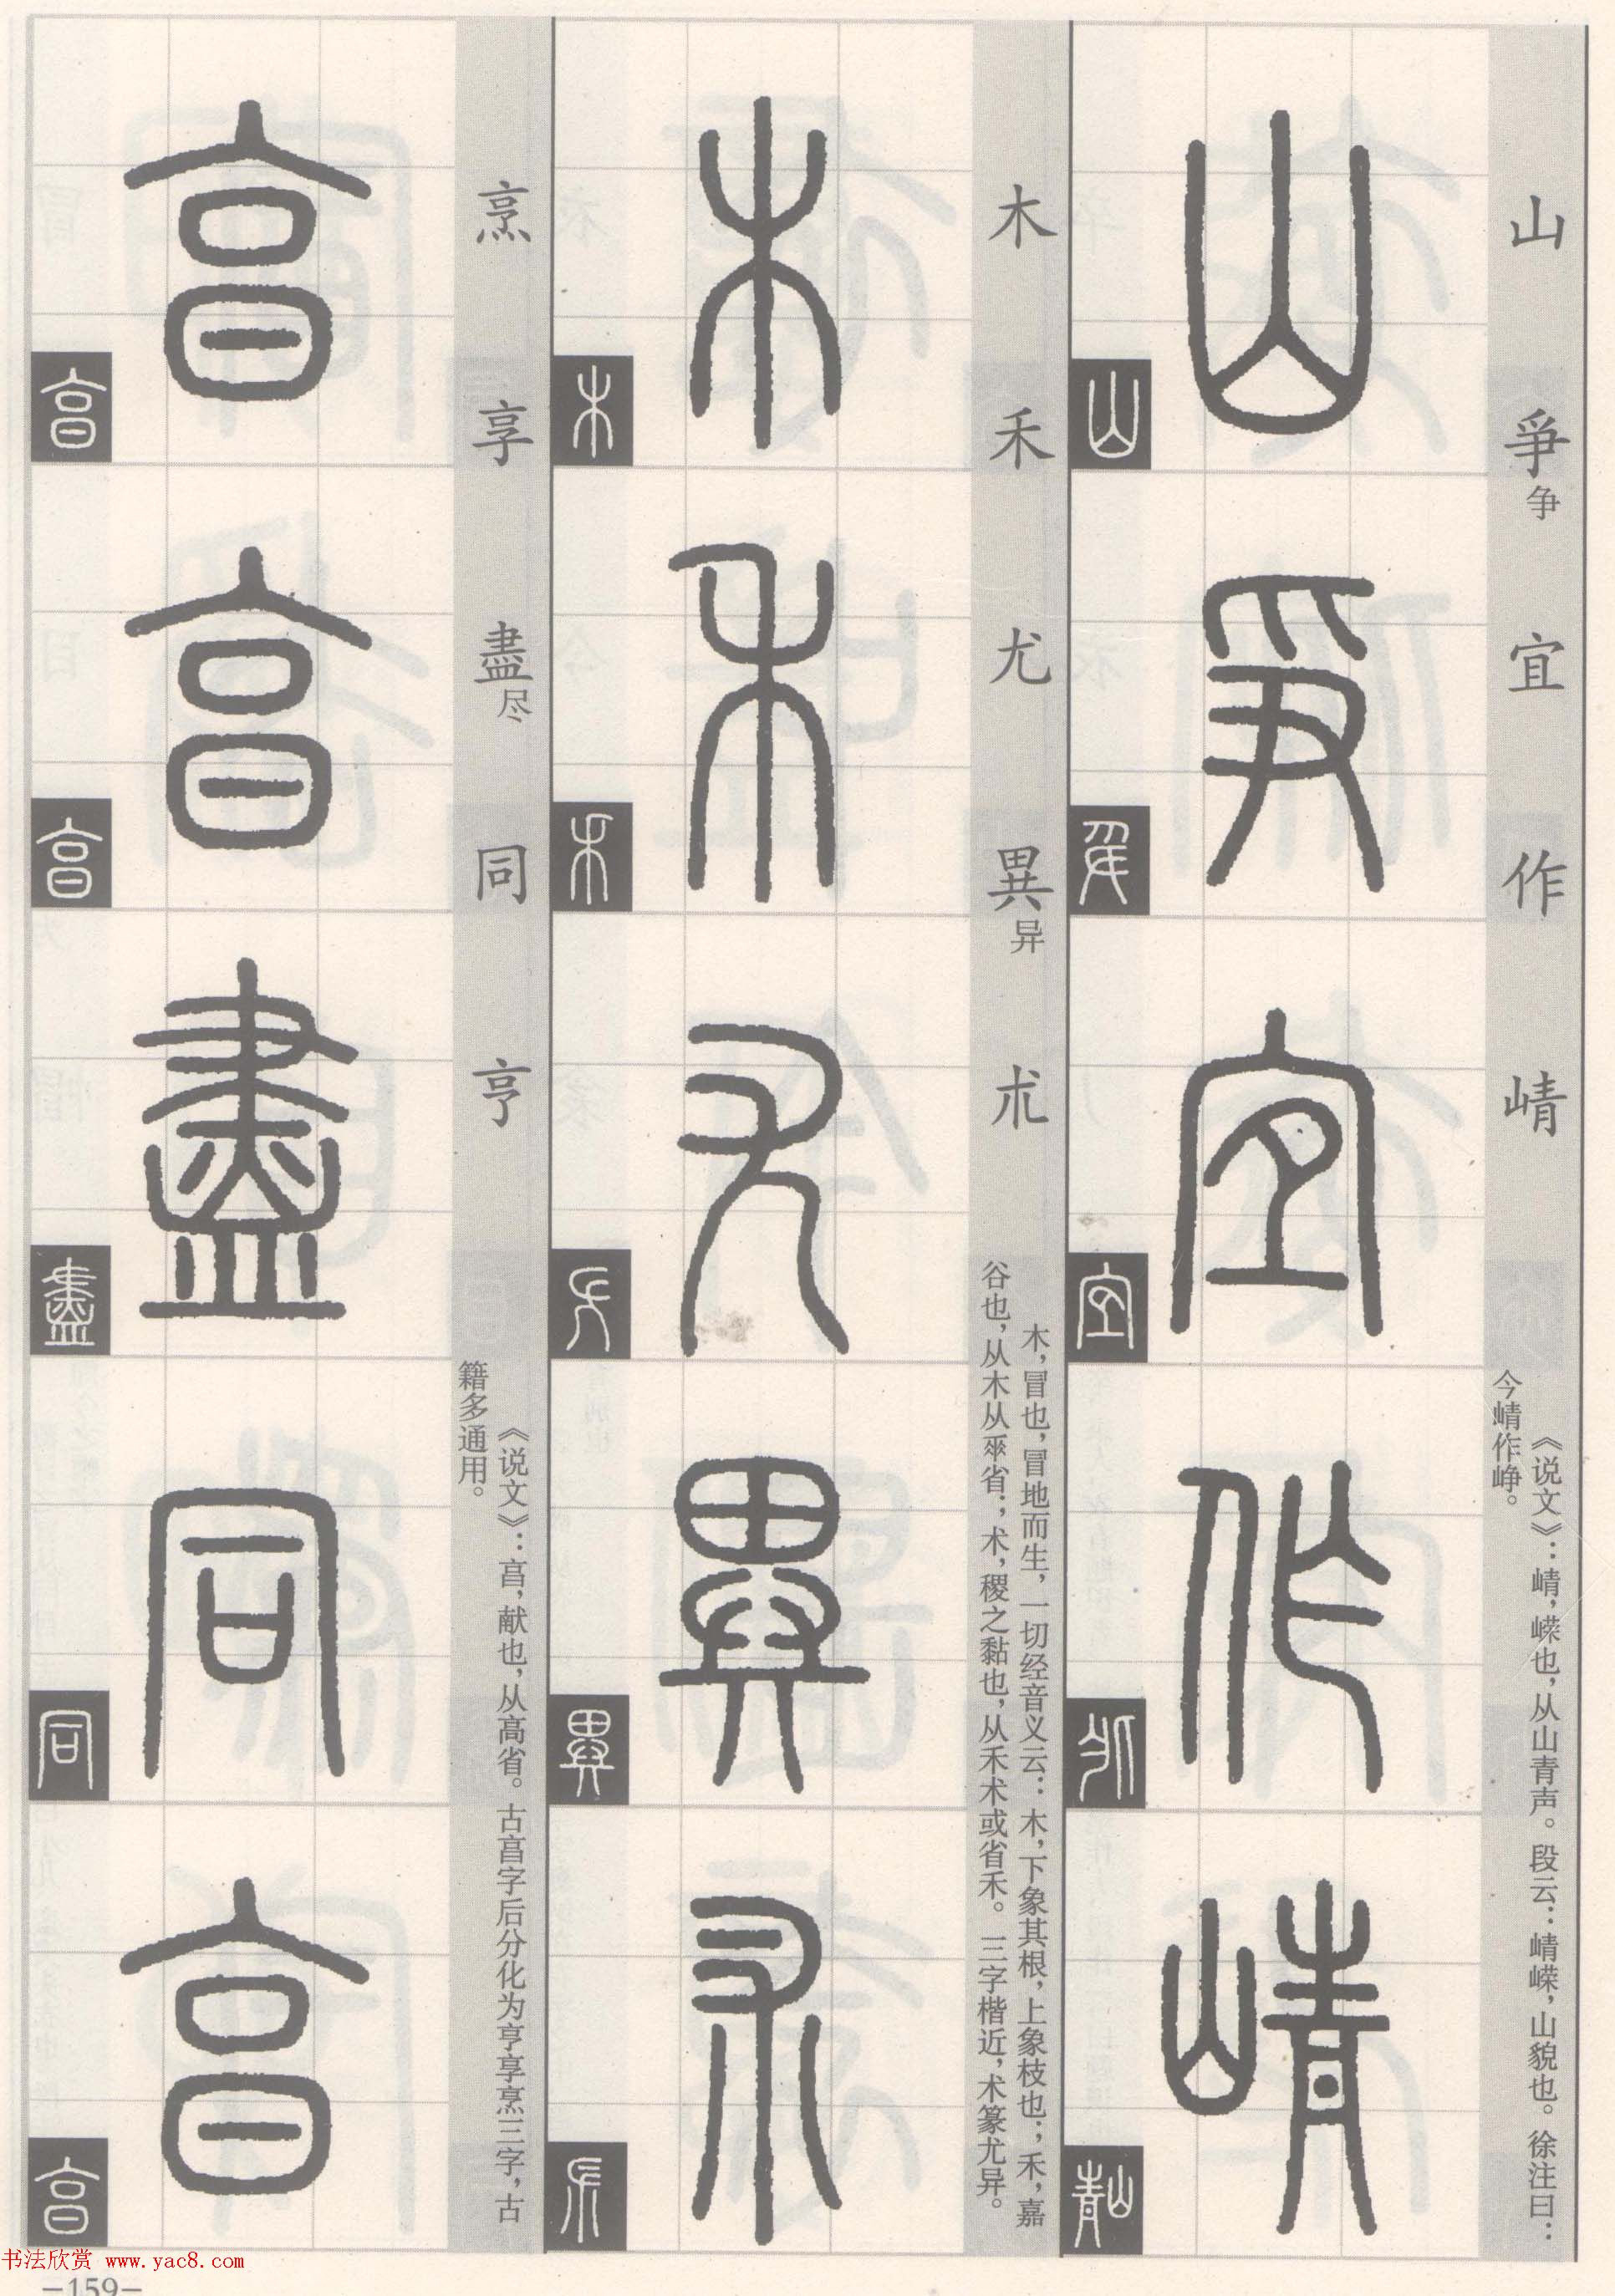 山爭争宜作崝
《说文》：崝，嵘也，从山青声。段云：崝嵘，山貌也。徐注曰：
今崝作峥。
山
爭
宜
作
崝
木禾尤異异朮
木，冒也，冒地而生，一切经音义云：木，下象其根，上象枝也；禾，嘉
谷也，从木从𠂹省；术，稷之黏也，从禾术或省禾。三字楷近，术篆尤异。
木
禾
尤
異
朮
烹享盡尽同亨
《说文》：亯，献也，从高省。古亯字后分化为亨享烹三字，古
籍多通用。
亯
亯
盡
同
亯
书法欣赏 www.yac8.com
-159-